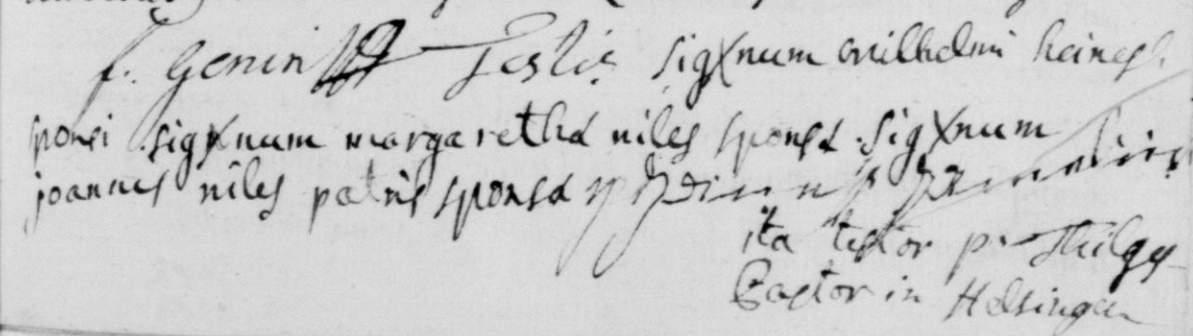 f. Genin Testis sigXnum wilhelmi heinesh
sponsi sigXnum margaretha niles sponsa sigXnum
joannes niles patris sponsa
ita testor p. Thilges
Pastor in Helsingen